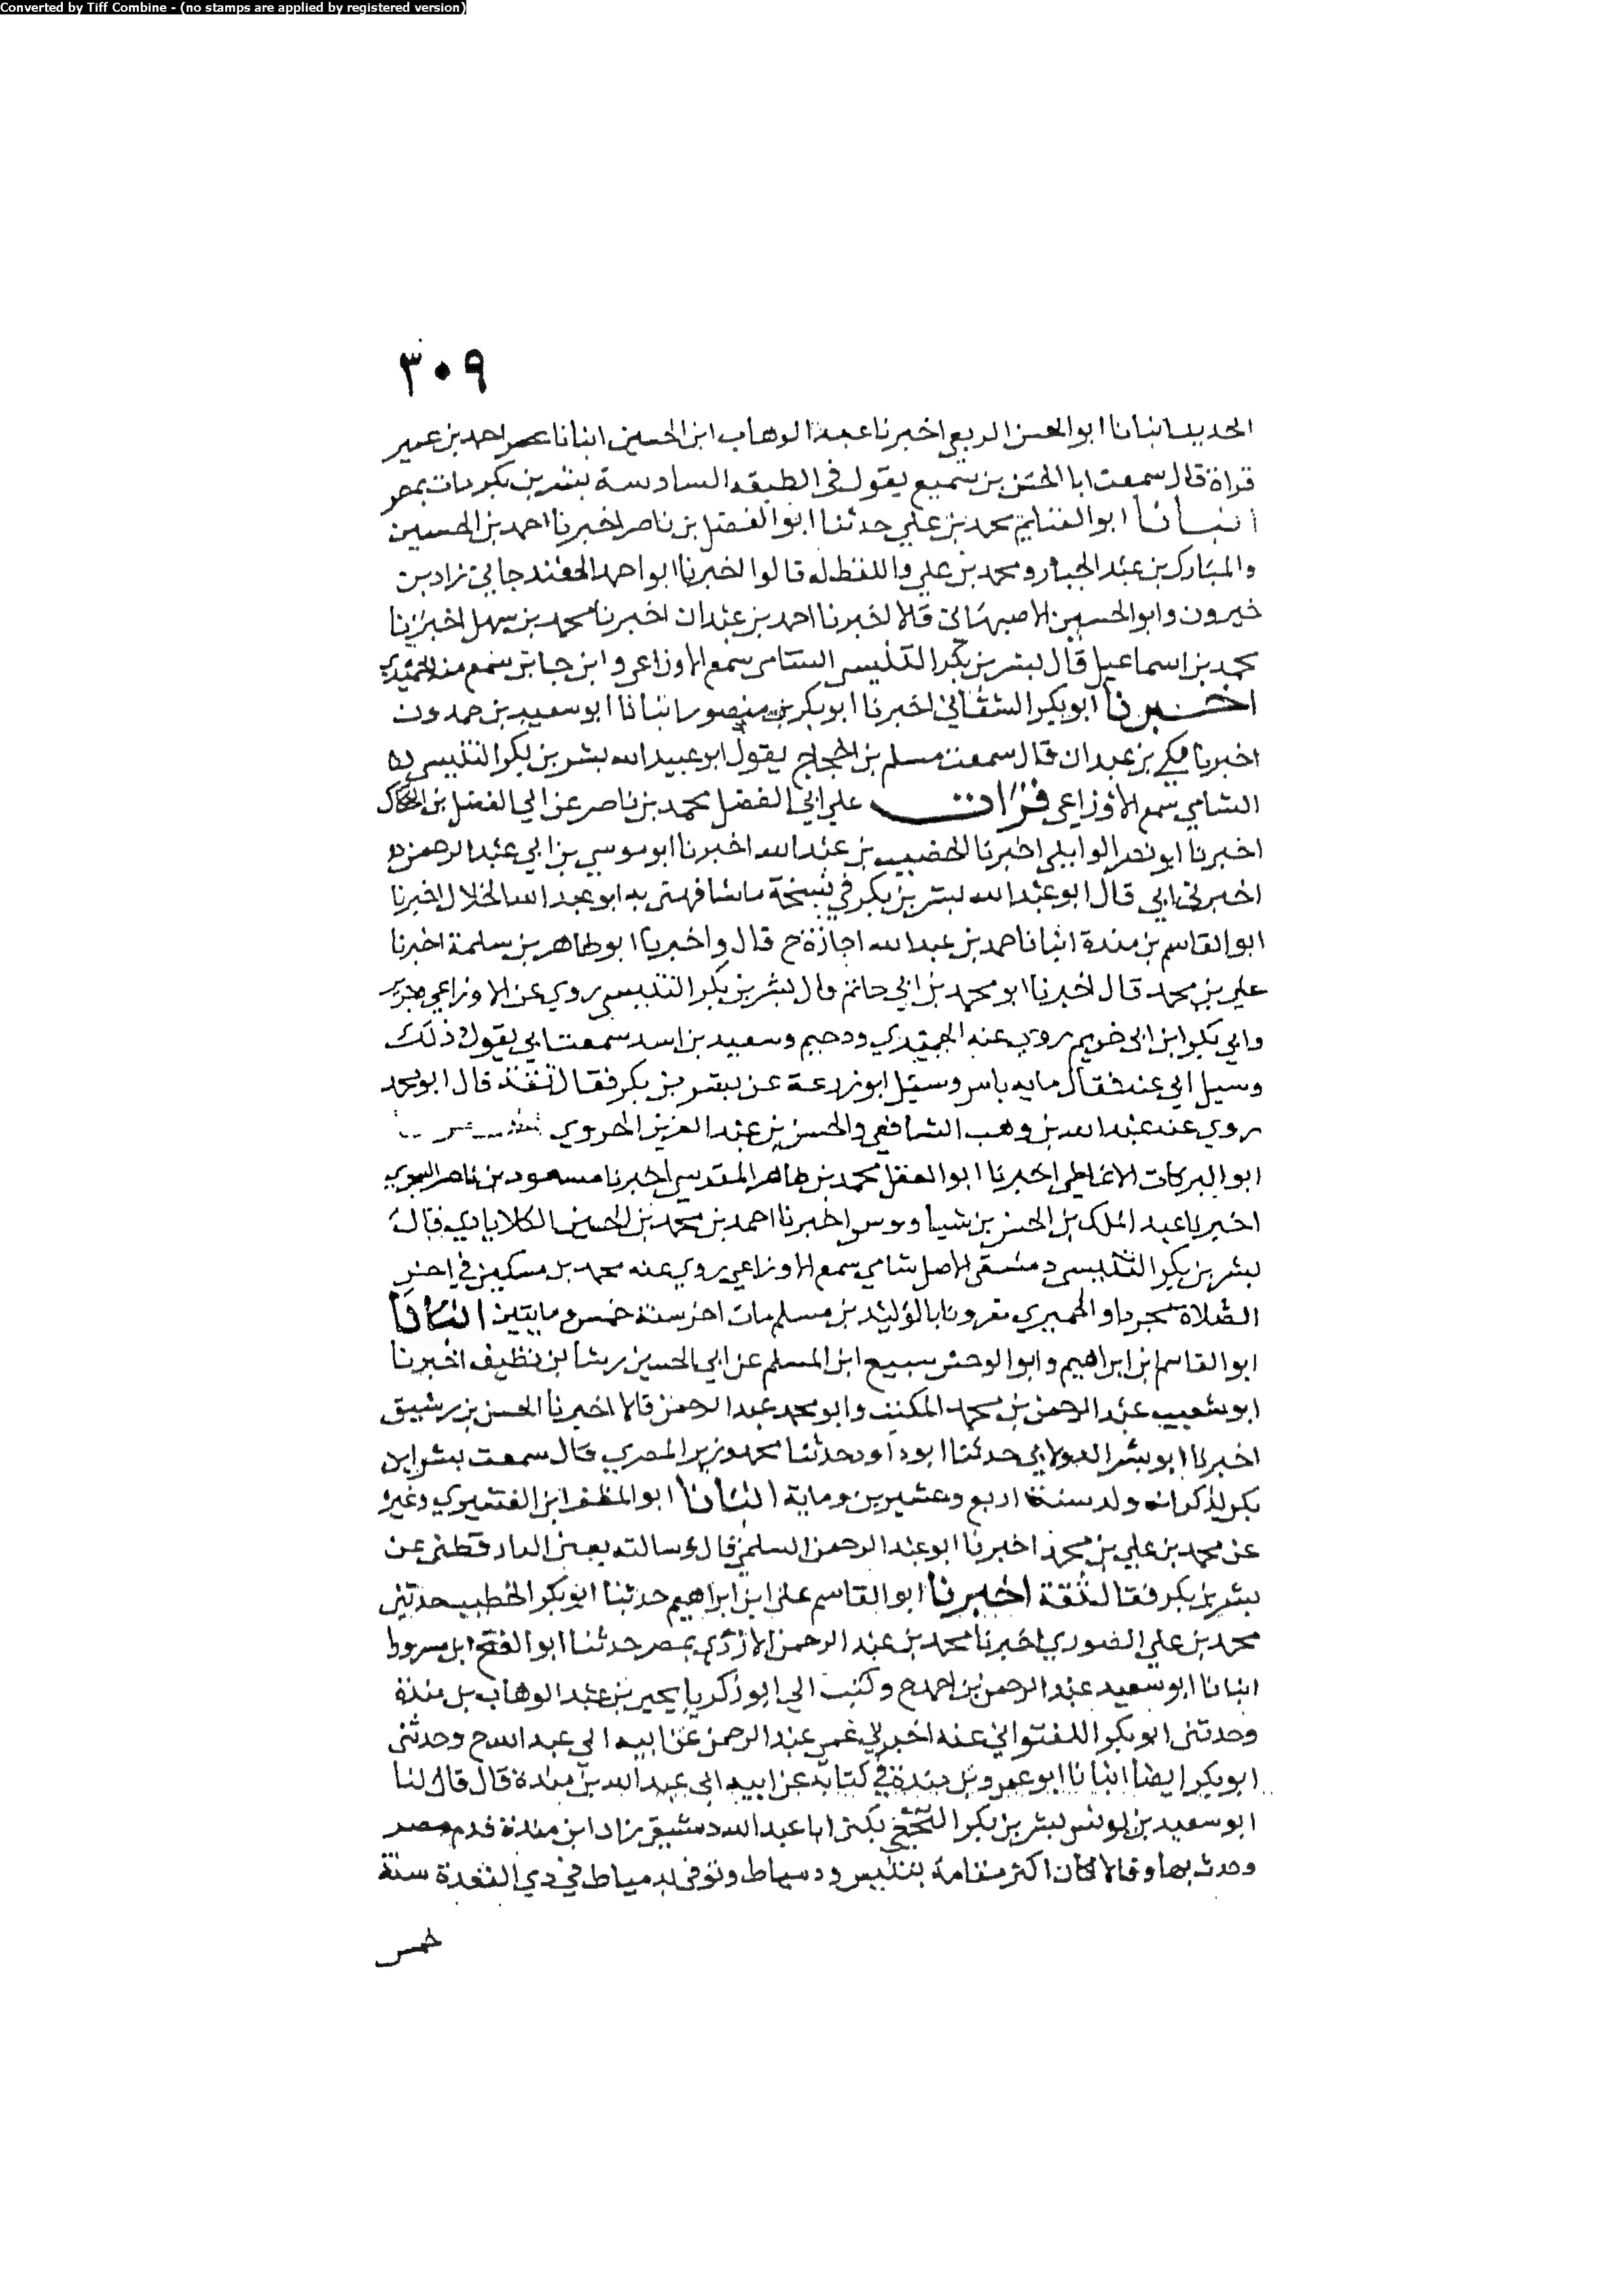 Converted by Tiff Combine - (no stamps are applied by registered version)
٣٠٩
الحديد انبانا ابو الحسن الربعي اخبرنا عبد الوهاب ابن الحسين انبانا احمد بن عمير
قراة قال سمعت ابا الحسن بن سميع يقول في الطبقه السادسة بشر بن بكر مات بمصر
انبانا ابو الغنايم محمد بن علي حدثنا ابو الفضل بن ناصر اخبرنا احمد بن الحسين
والمبارك بن عبد الجبار ومحمد بن علي واللفظ له قالوا اخبرنا ابو احمد زاد بن
خيرون وابو الحسين الاصبهاني قالا اخبرنا احمد بن عبدان اخبرنا محمد بن سهل اخبرنا
محمد بن اسماعيل قال بشر بن بكر التنيسي الشامي سمع الاوزاعي وابن جابر سمع منه الحميدي
اخبرنا ابو بكر الشقاني اخبرنا ابو بكر بن منصور انبانا ابو سعيد بن حمدون
اخبرنا مكي بن عبدان قال سمعت مسلم بن الحجاج يقول ابو عبيد الله بشر بن بكر التنيسي
الشامي سمع الاوزاعي قرات علي ابي الفضل محمد بن ناصر عن ابي الفضل بن الحكاك
اخبرنا ابو نصر الوايلي اخبرنا الخصيب بن عبد الله اخبرنا ابو موسي بن ابي عبد الرحمن
اخبرني ابي قال ابو عبد الله بشر بن بكر في نسخة ما شافهني به ابو عبد الله الخلال اخبرنا
ابو القاسم بن مندة انبانا حمد بن عبد الله اجازة ح قال واخبرنا ابو طاهر بن سلمة اخبرنا
علي بن محمد قال اخبرنا ابو محمد بن ابي حاتم قال بشر بن بكر التنيسي روي عن الاوزاعي وحريز
وابي بكر ابن ابي مريم روي عنه الحميدي ودحيم وسعيد بن اسد سمعت ابي يقول ذلك
وسيل ابي عنه فقال ما به باس وسيل ابو زرعة عن بشر بن بكر فقال ثقة قال ابو محمد
روي عنه عبد الله بن وهب الشافعي والحسن بن عبد العزيز الجروي
ابو البركات الانماطي اخبرنا ابو الفضل محمد بن طاهر المقدسي اخبرنا مسعود بن ناصر السجزي
اخبرنا عبد الملك بن الحسن بن سياووس اخبرنا احمد بن محمد بن الحسين الكلاباذي قال
بشر بن بكر التنيسي دمشقي الاصل شامي سمع الاوزاعي روي عنه محمد بن مسكين في اخر
الصلاة والحميري مقرونا بالوليد بن مسلم مات اخر سنة خمس ومايتين انبانا
ابو القاسم ابن ابراهيم وابو الوحش سبيع ابن المسلم عن ابي الحسين رشا بن نظيف اخبرنا
ابو شعيب عبد الرحمن بن محمد المكتب وابو محمد عبد الرحمن قالا اخبرنا الحسن بن رشيق
اخبرنا ابو بشر الدولابي حدثنا ابو داود حدثنا محمد وزير المصري قال سمعت بشر ابن
بكر يذكر انه ولد سنة اربع وعشيرين وماية انبانا ابو المظفر ابن القشيري وغيره
عن محمد بن علي بن محمد اخبرنا ابو عبد الرحمن السلمي قال وسالته يعني الدارقطني عن
بشر بن بكر فقال ثقة اخبرنا ابو القاسم علي ابن ابراهيم حدثنا ابو بكر الخطيب حدثني
محمد بن علي الصوري اخبرنا محمد بن عبد الرحمن الازدي بمصر حدثنا ابو الفتح ابن مسرور
انبانا ابو سعيد عبد الرحمن بن احمد ح وكتب الي ابو زكريا يحيي بن عبد الوهاب بن مندة
وحدثني ابو بكر اللفتواني عنه اخبرني عمي عبد الرحمن عن ابيه ابي عبد الله ح وحدثني
ابو بكر ايضا انبانا ابو عمرو بن مندة في كتابه عن ابيه ابي عبد الله بن مندة قال قال لنا
ابو سعيد بن يونس بشر بن بكر يكنى ابا عبد الله دمشقي زاد ابن مندة قدم مصر
وحدث بها وقالا كان اكثر مقامه بتنيس ودمياط وتوفي بدمياط في ذي القعدة سنة
خمس